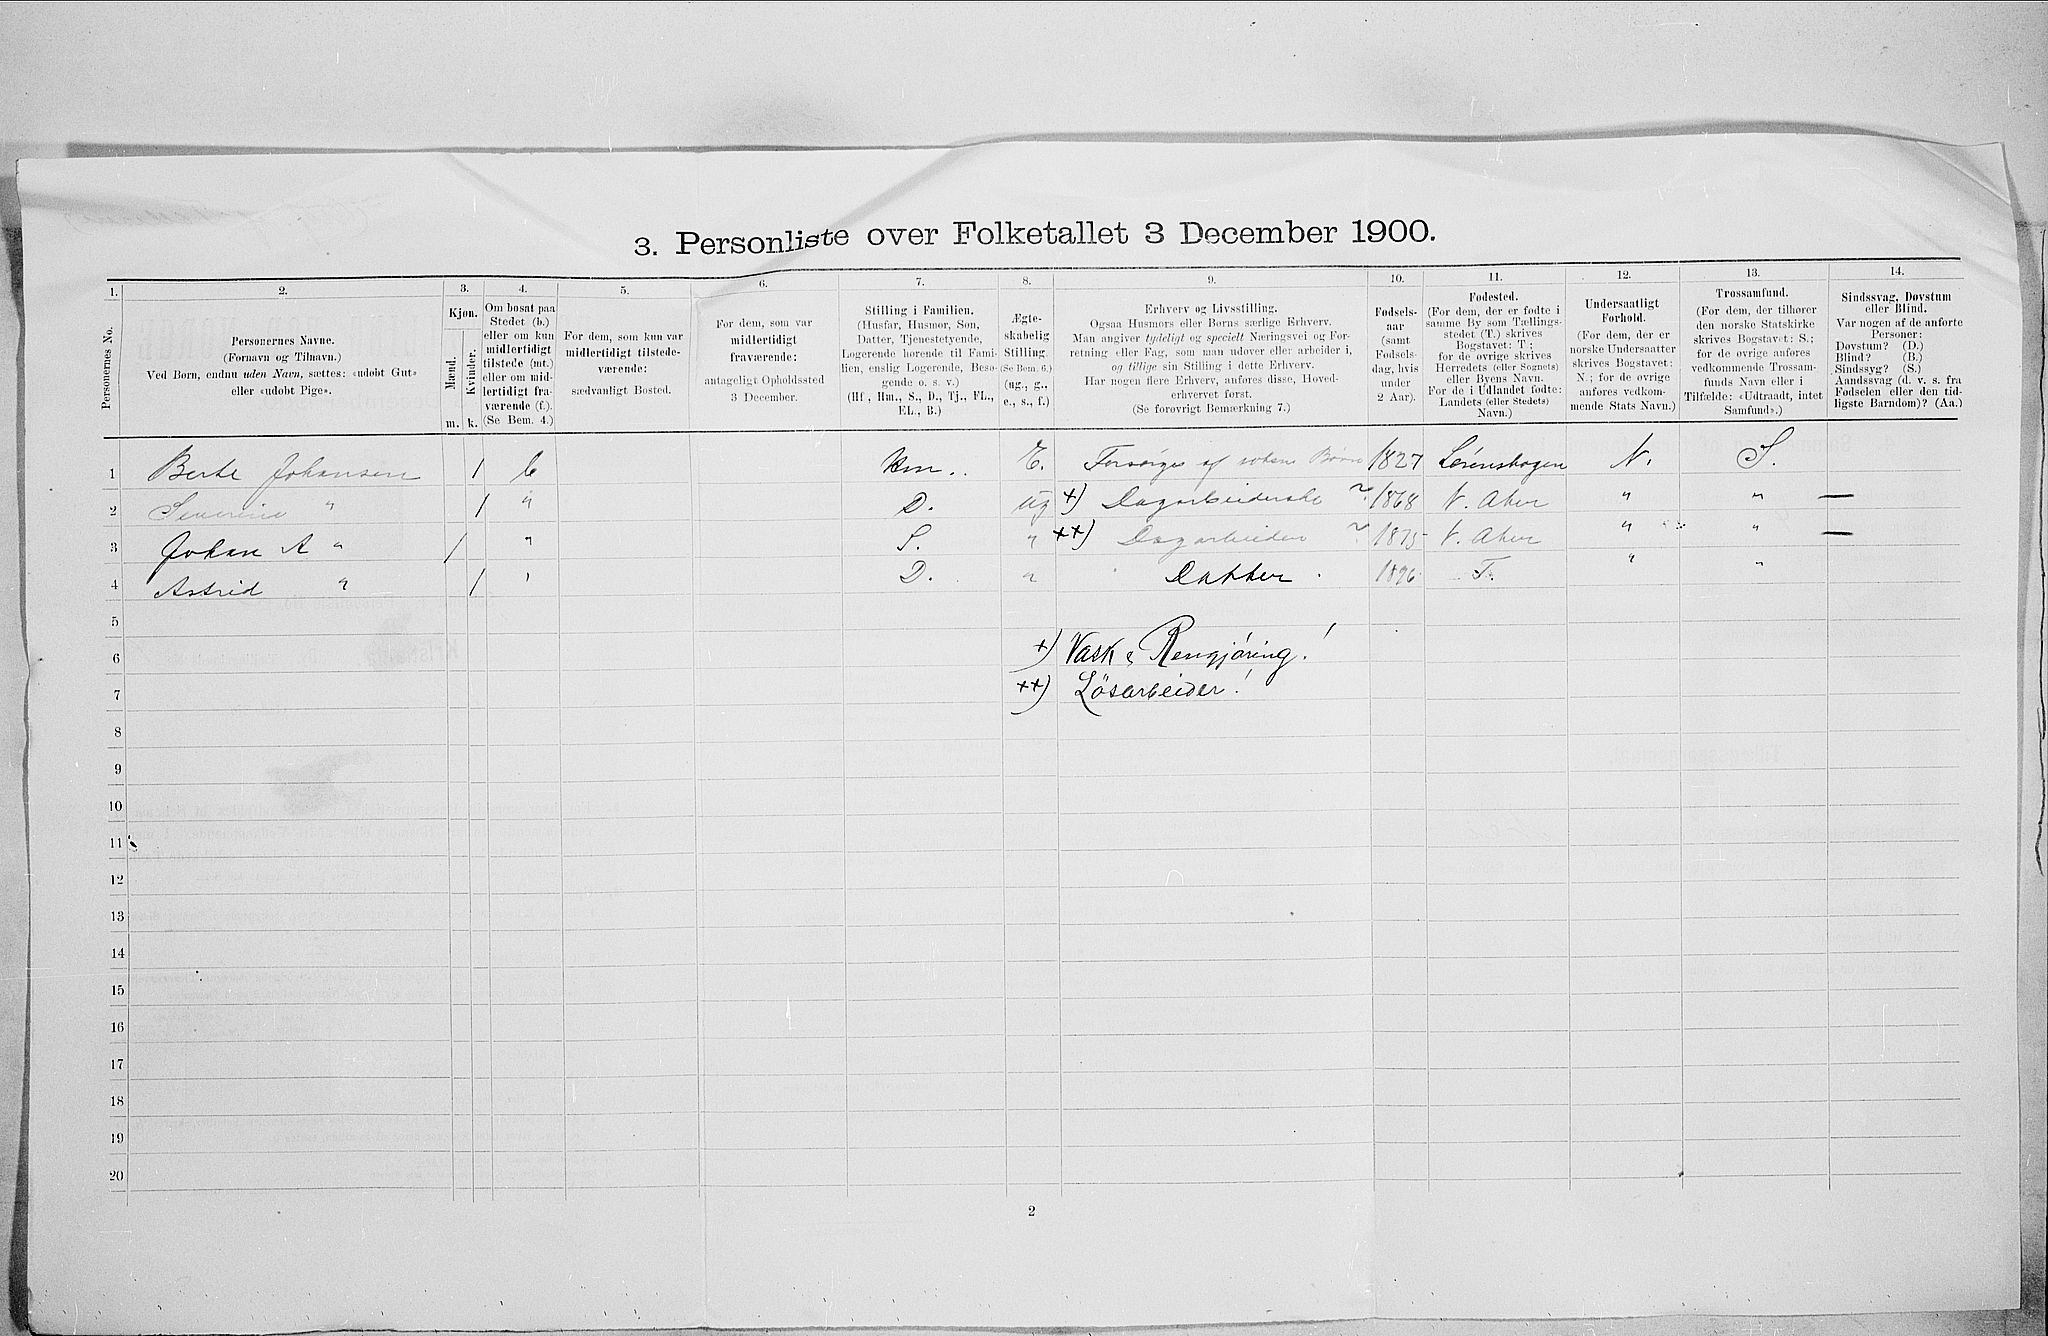 3. Personliste over Folketallet 3 December 1900.
1. 2. 3. 4. 5. 6. 7. 8. 9. 10. 11. 12. 13. 14.
Personernes No.
Personernes Navne.
(Fornavn og Tilnavn.)
Ved Børn, endnu uden Navn, sættes: «udøbt Gut»
eller «udøbt Pige».
Kjøn.
Mænd.
Kvinder.
m. k.
Om bosat paa
Stedet (b.)
eller om kun
midlertidigt
tilstede (mt.)
eller om mid-
lertidigt fra-
værende (f.).
(Se Bem. 4.)
For dem, som kun var
midlertidigt tilstede-
værende:
sædvanligt Bosted.
For dem, som var
midlertidigt
fraværende:
antageligt Opholdssted
3 December.
Stilling i Familien.
(Husfar, Husmor, Søn,
Datter, Tjenestetyende,
Logerende hørende til Fami-
lien, enslig Logerende, Besø-
gende o. s. v.)
(Hf., Hm., S., D., Tj., FL.,
EL., B.)
Ægte-
skabelig
Stilling.
(Se Bem. 6.)
(ug., g.,
e., s., f.)
Erhverv og Livsstilling.
Ogsaa Husmors eller Børns særlige Erhverv.
Man angiver tydeligt og specielt Næringsvei og For-
retning eller Fag, som man udøver eller arbeider i,
og tillige sin Stilling i dette Erhverv.
Har nogen flere Erhverv, anføres disse, Hoved-
erhvervet først.
(Se forøvrigt Bemærkning 7.)
Fødsels-
aar
(samt
Fødsels-
dag, hvis
under
2 Aar).
Fødested.
(For dem, der er fødte i
samme By som Tællings-
stedet (T.) skrives
Bogstavet: T;
for de øvrige skrives
Herredets (eller Sognets)
eller Byens Navn.
For de i Udlandet fødte:
Landets (eller Stedets)
Navn.)
Undersaatligt
Forhold.
(For dem, der er
norske Undersaatter
skrives Bogstavet:
N.; for de øvrige
anføres vedkom-
mende Stats Navn.)
Trossamfund.
(For dem, der tilhører
den norske Statskirke
skrives Bogstavet: S.;
for de øvrige anføres
vedkommende Trossam-
funds Navn eller i
Tilfælde: «Udtraadt, intet
Samfund».)
Sindssvag, Døvstum
eller Blind.
Var nogen af de anførte
Personer:
Døvstum? (D.)
Blind? (B.)
Sindssyg? (S.)
Aandssvag (d. v. s. fra
Fødselen eller den tid-
ligste Barndom)? (Aa.)
1 Berte Johansen 1 b Hm. E. Forsørges af voksne Børn 1827 Lørenskogen N. S.
2 Severine " 1 " D. ug +) Dagarbeiderske ? 1868 V. Aker " " —
3 Johan A " 1 " S. " ++) Dagarbeider ? 1875 V. Aker " " —
4 Astrid " 1 " D. " Datter. 1896 T. " "
5
6 +) Vask & Rengjøring!
7 ++) Løsarbeider!
8
9
10
11
12
13
14
15
16
17
18
19
20
2